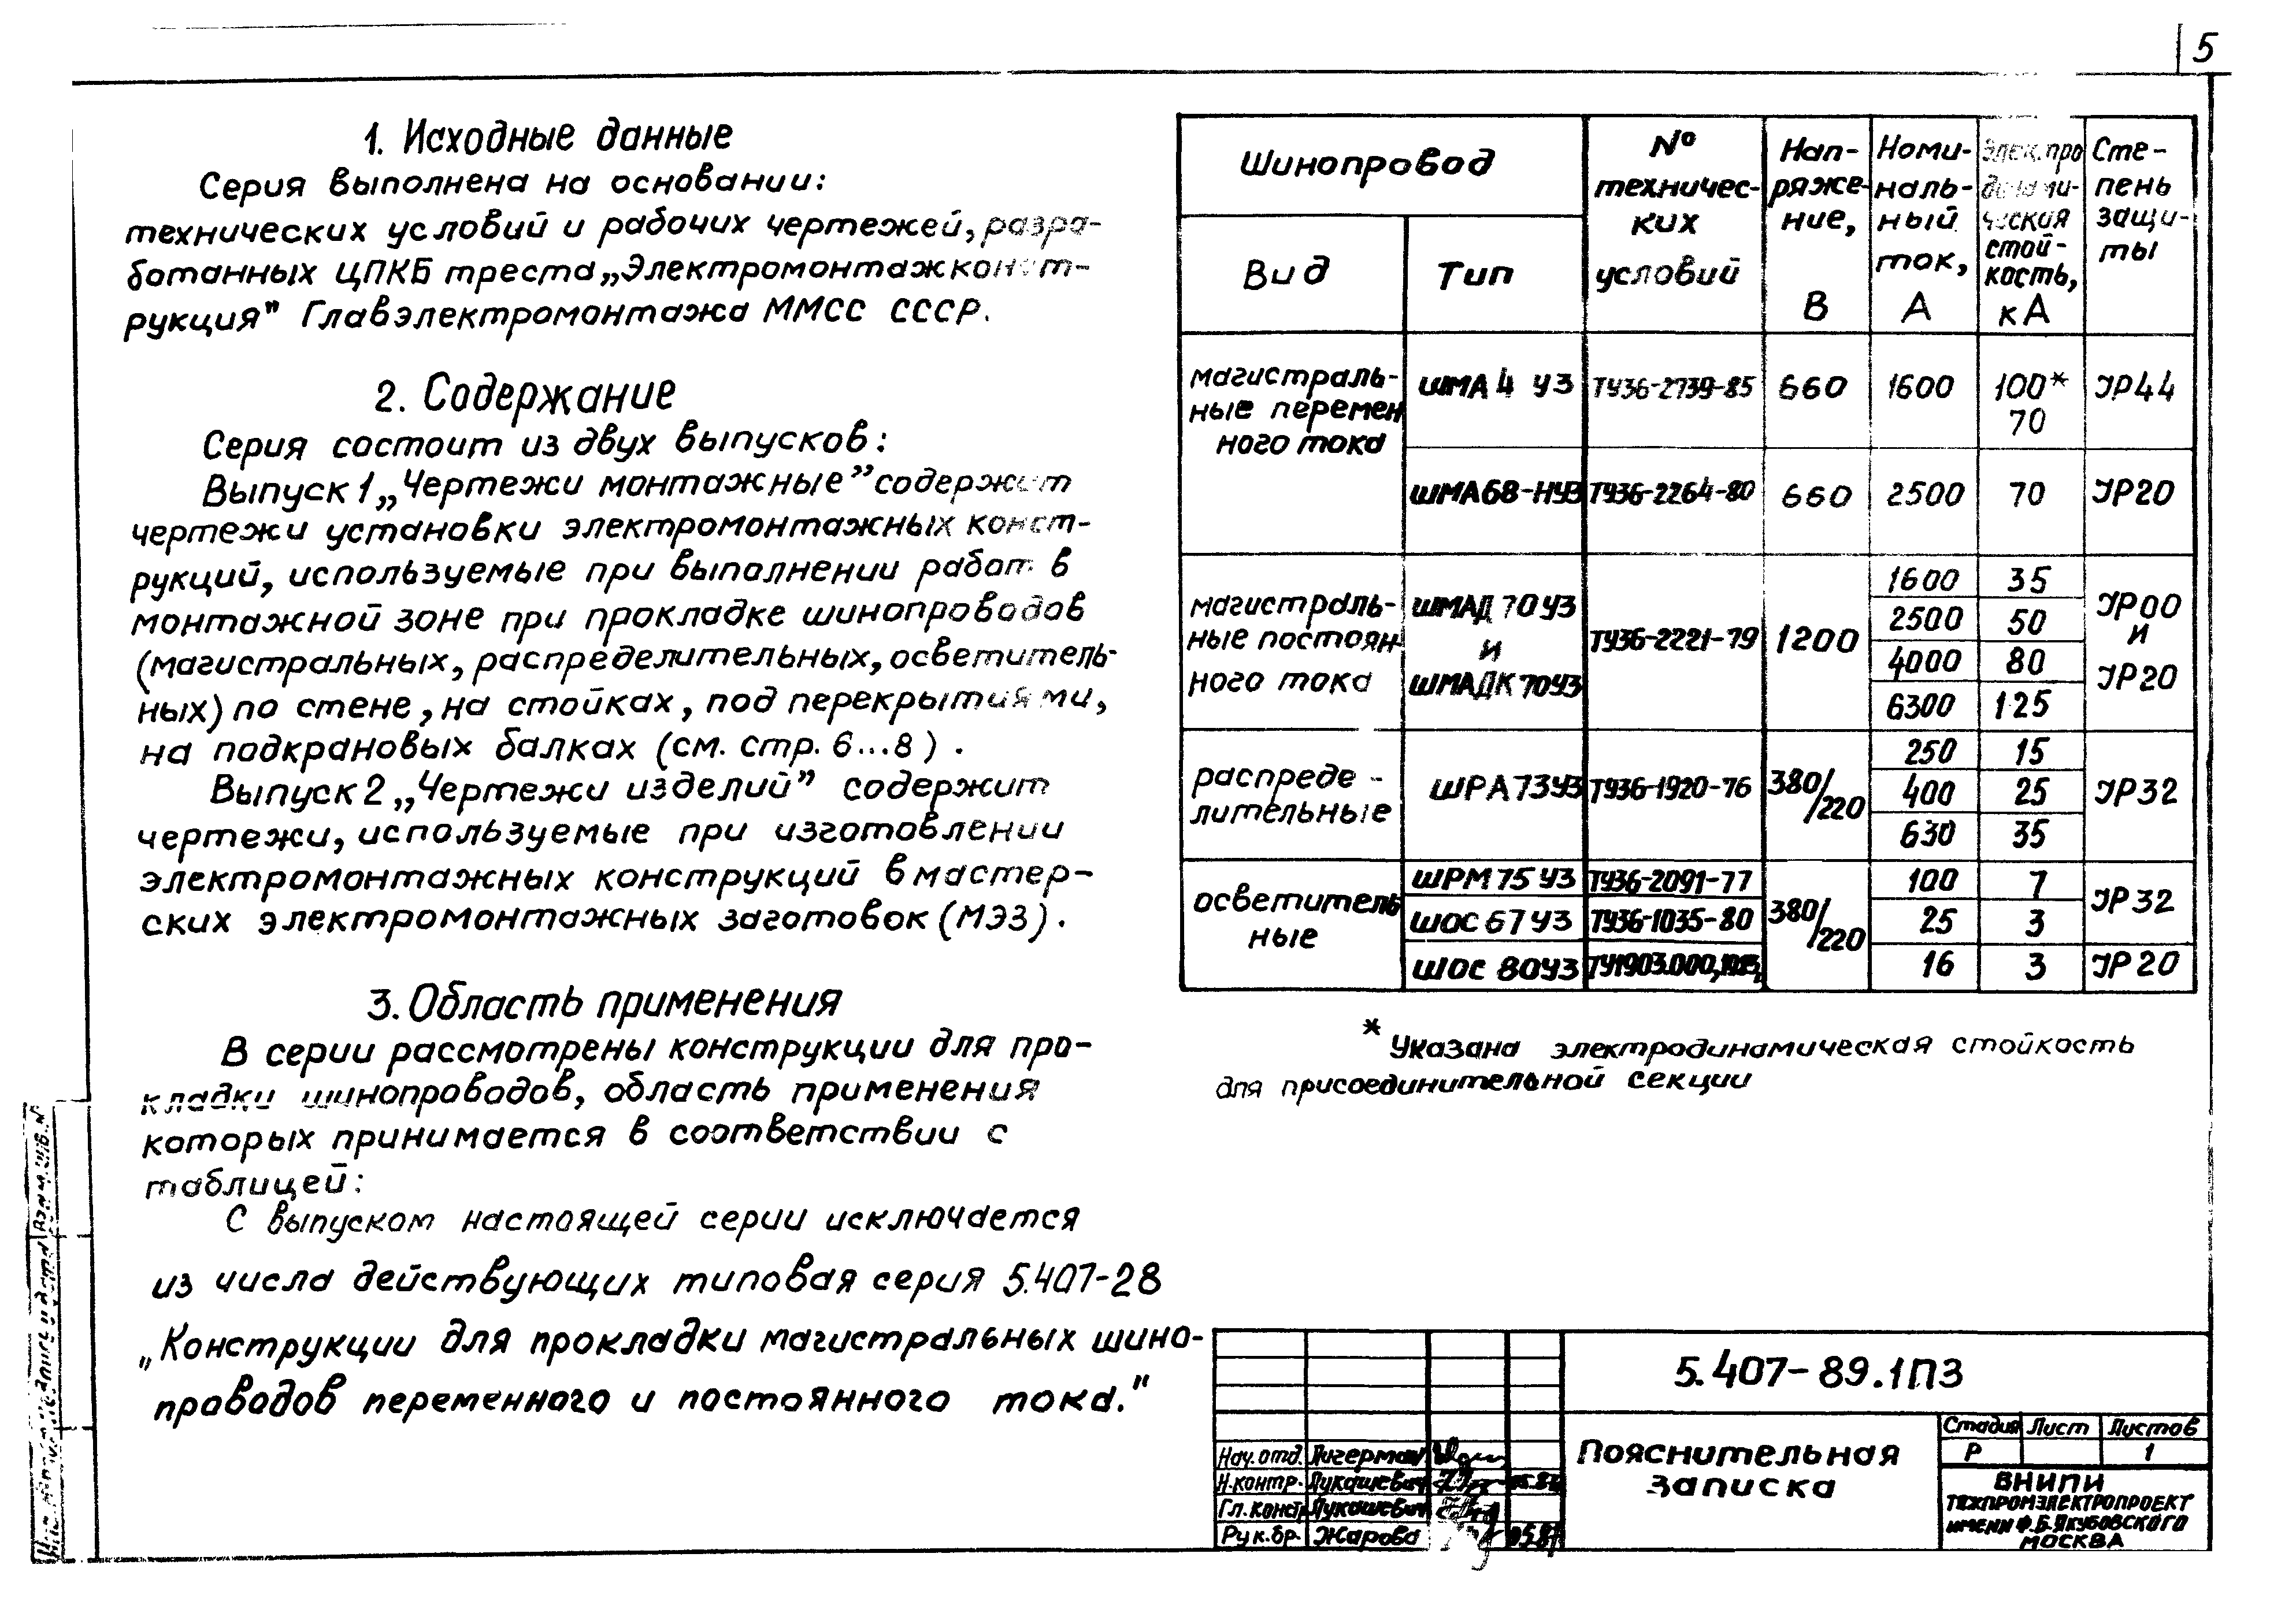 5
1. Исходные данные
Серия выполнена на основании:
технических условий и рабочих чертежей, разра-
ботанных ЦПКБ треста „Электромонтажконст-
рукция" Главэлектромонтажа ММСС СССР.
2. Содержание
Серия состоит из двух выпусков:
Выпуск 1 „Чертежи монтажные" содержит
чертежи установки электромонтажных конст-
рукций, используемые при выполнении работ в
монтажной зоне при прокладке шинопроводов
(магистральных, распределительных, осветитель-
ных) по стене, на стойках, под перекрытиями,
на подкрановых балках (см. стр. 6...8).
Выпуск 2 „Чертежи изделий" содержит
чертежи, используемые при изготовлении
электромонтажных конструкций в мастер-
ских электромонтажных заготовок (МЭЗ).
3. Область применения
В серии рассмотрены конструкции для про-
кладки шинопроводов, область применения
которых принимается в соответствии с
таблицей:
С выпуском настоящей серии исключается
из числа действующих типовая серия 5.407-28
„Конструкции для прокладки магистральных шино-
проводов переменного и постоянного тока."
Шинопровод
Вид
Тип
№
техничес-
ких
условий
Нап-
ряже-
ние,
В
Номи-
наль-
ный
ток,
А
Электро
динами-
ческая
стой-
кость,
кА
Сте-
пень
защи-
ты
магистраль-
ные перемен
ного тока
ШМА4 У3 ТУ36-2739-85 660 1600 100* JP44
70
ШМА68-НУ3 ТУ36-2264-80 660 2500 70 JP20
магистраль-
ные постоян
ного тока
ШМАД 70У3
и
ШМАДК 70У3
ТУ36-2221-79 1200
1600 35
2500 50
4000 80
6300 125
JP00
и
JP20
распреде-
лительные
ШРА73У3 ТУ36-1920-76 380/220
250 15
400 25
630 35
JP32
осветитель
ные
ШРМ75 У3 ТУ36-2091-77 100 7
380/220 JP32
ШОС 67 У3 ТУ36-1035-80 25 3
ШОС 80У3 16 3 JP20
* Указана электродинамическая стойкость
для присоединительной секции
5.407-89.1ПЗ
Пояснительная
записка
Стадия Лист Листов
Р 1
ВНИПИ
ТЯЖПРОМЭЛЕКТРОПРОЕКТ
ИМЕНИ Ф.Б.ЯКУБОВСКОГО
МОСКВА
Нач.отд.
Н.контр. Лукашевич
Гл.констр. Лукашевич
Рук.бр. Жарова 05.87